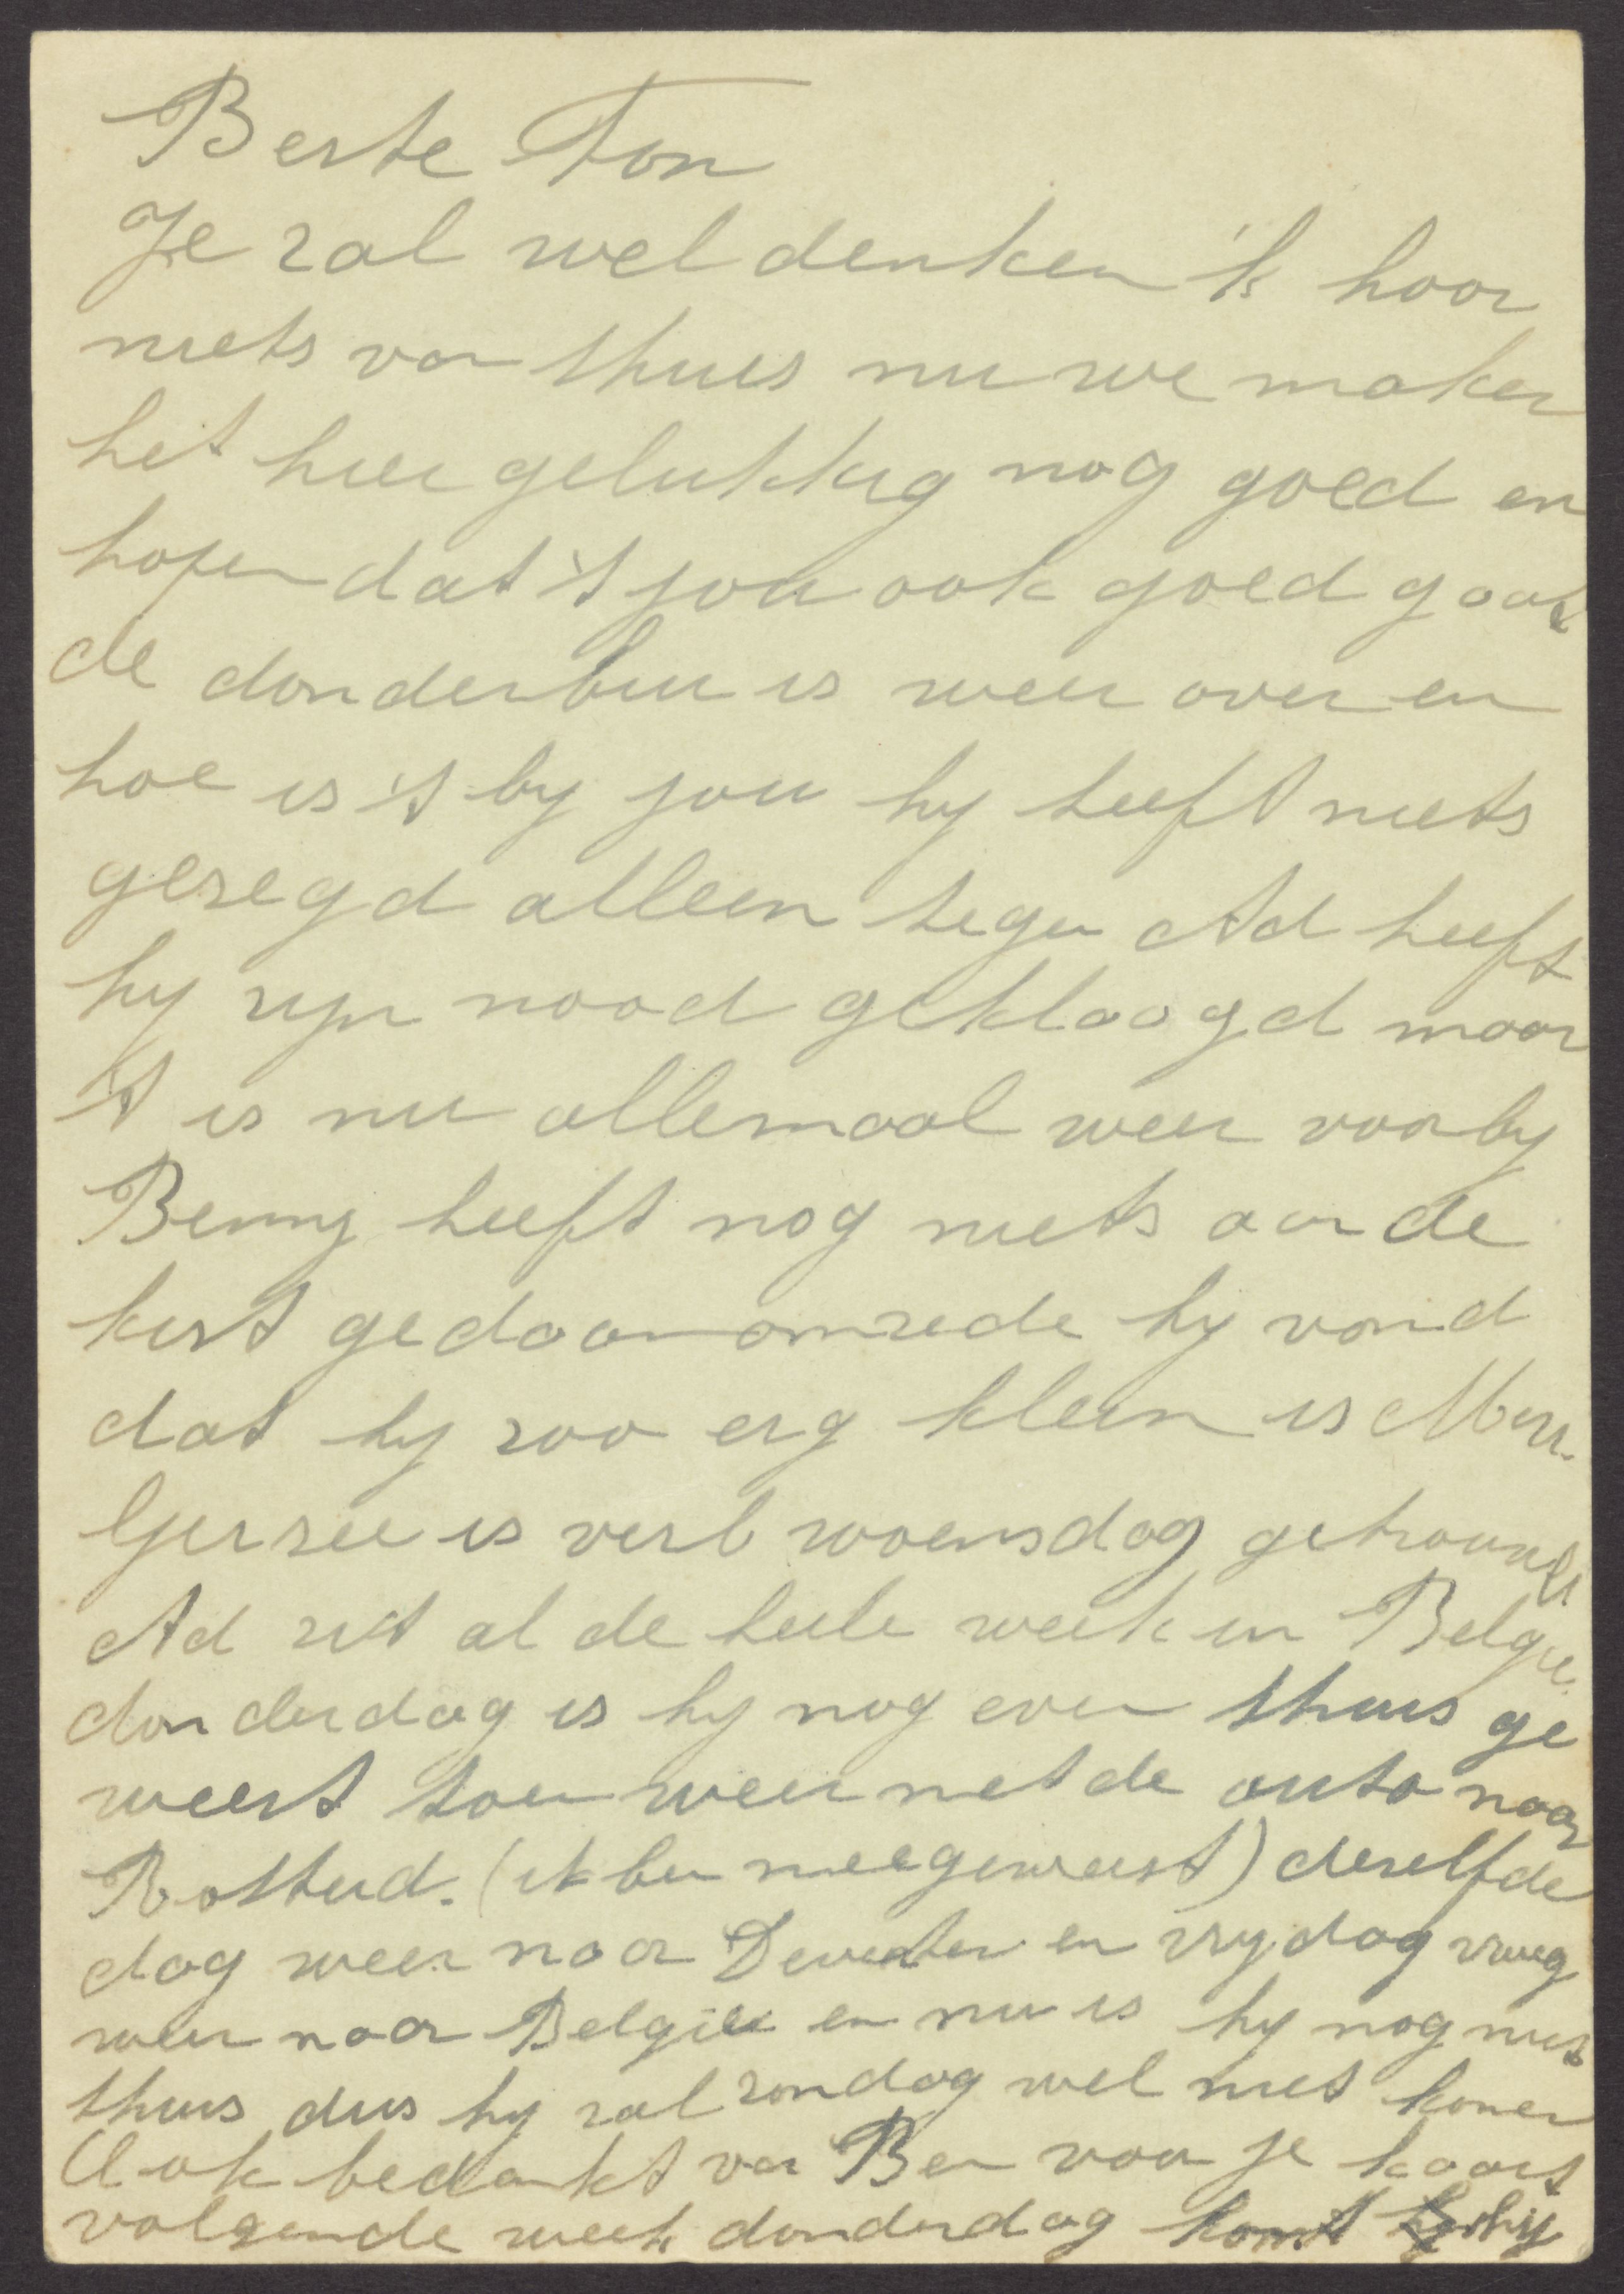 Beste Ton
Je zal wel denken 'k hoor
niets van thuis nu we maken
het hier gelukkig nog goed en
hopen dat 't jou ook goed gaat
de donderbui is weer over en
hoe is 't by jou hy heeft niets
gezegd alleen tegen Ad heeft
hy zyn nood geklaagd maar
't is nu allemaal weer voorby
Benny heeft nog niets aan de
kist gedaan omrede hy vond
dat hy zoo erg klein is
is verl woensdag getrouwd.
Ad zit al de heele week in Belgie.
donderdag is hy nog even thuis ge
weest toen weer met de auto naar
Rotterd. (ik ben meegeweest) dezelfde
dag weer naar Deventer en vrydag vroeg
weer naar Belgie en nu is hy nog niet
thuis dus hy zal zondag wel niet komen
Ook bedankt van Ben voor je kaart
volgende week donderdag komt hij